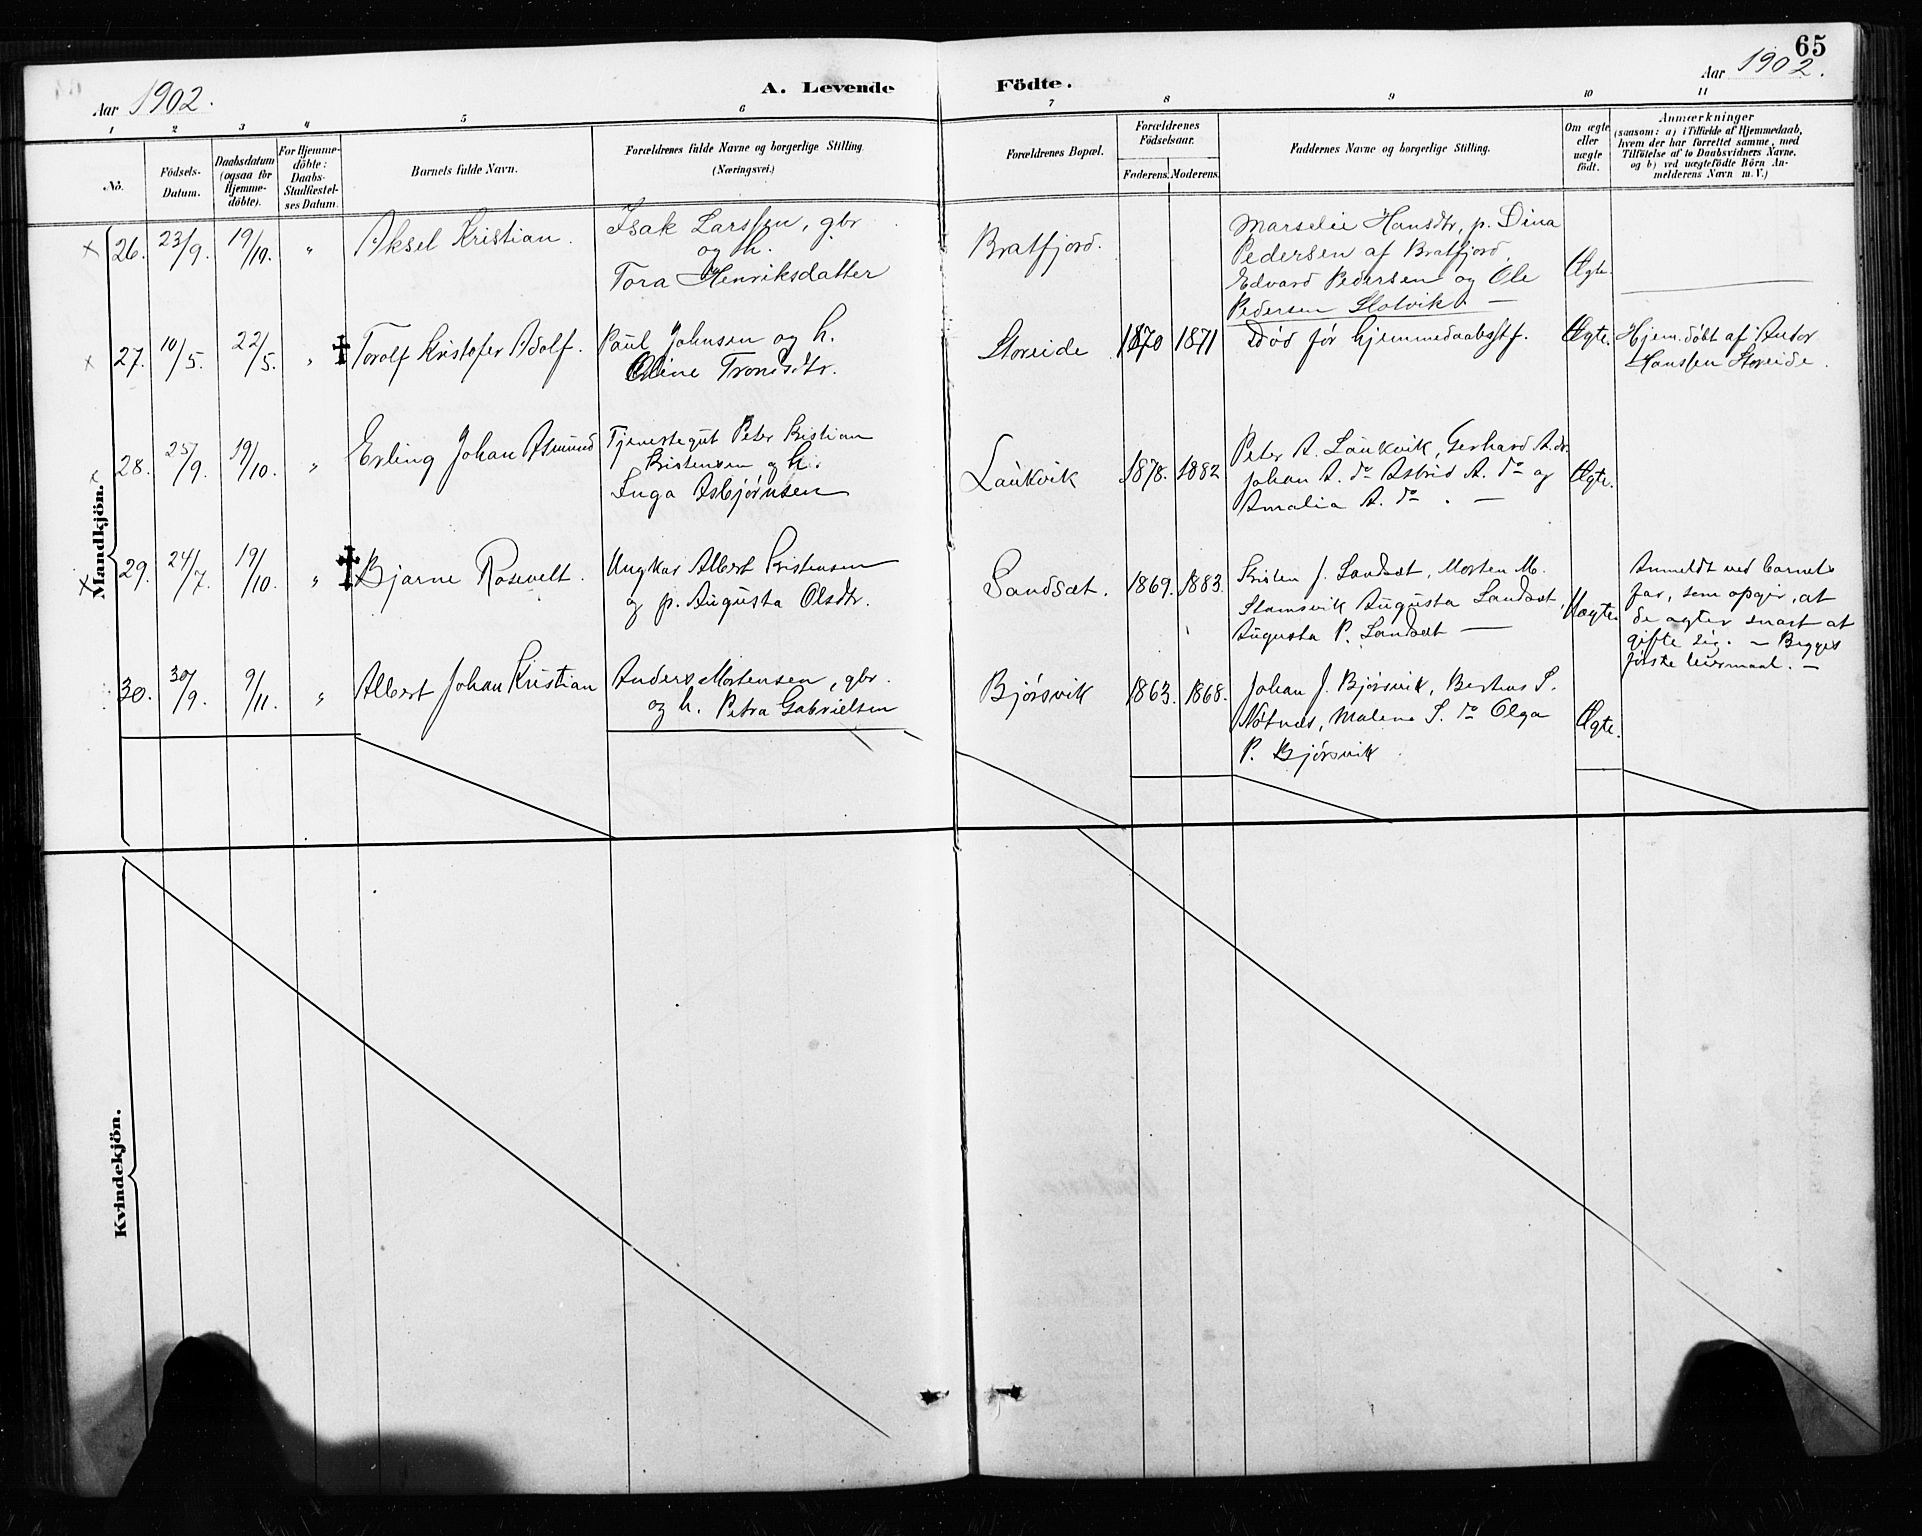 65
Aar 1902.
A. Levende Födte.
Aar 1902.
1 2 3 4 5 6 7 8 9 10 11
No.
Födsels-
Datum.
Daabsdatum
(ogsaa for
Hjemme-
döbte).
For Hjemme-
döbte:
Daabs-
Stadfæstel-
ses Datum.
Barnets fulde Navn.
Forældrenes fulde Navne og borgerlige Stilling.
(Næringsvei.)
Forældrenes Bopæl.
Forældrenes
Födselsaar.
Faderens. Moderens.
Faddernes Navne og borgerlige Stilling.
Om ægte
eller
uægte
födt.
Anmærkninger
(saasom: a) i Tilfælde af Hjemmedaab,
hvem der har forrettet samme, med
Tilföielse af to Daabsvidners Navne.
og b) ved uægtefödte Börn An-
melderens Navn m. V.)
Mandkjön.
26. 23/9. 19/10. " Aksel Kristian.
Isak Larssen, gbr
og h.
Tora Henriksdatter
Bratfjord.
Marselie Hansdtr, p. Dina
Pedersen af Bratfjord,
Edvard Pedersen og Ole
Pedersen Slotvik. —
Ægte.
27. 10/5. 22/5. " Torolf Kristofer Adolf.
Paul Johnsen og h.
Oline Trondsdtr.
Storeide 1870 1871
Død før hjemmedaabsstf.
Ægte.
Hjem.døbt af Anton
Hanssen Storeide.
28. 25/9. 19/10. " Erling Johan Asmund
Tjenestegut Peter Kristian
Kristensen og h.
Inga Asbjørnsen
Laukvik 1878. 1882
Peter A. Laukvik, Gerhard A. do
Johan A. do Astrid A. do og
Amalia A. do. —
Ægte.
29. 24/7. 19/10. " Bjarne Rosevelt.
Ungkar Albert Kristensen
og p. Augusta Olsdtr.
Sandsæt. 1869. 1883.
Kristen J. Sandsæt, Morten M.
Stamsvik Augusta Sandsæt,
Augusta P. Sandsæt —
Uægte.
Anmeldt ved barnets
far, som opgir, at
de agter snart at
gifte sig. — Begges
første leiermaal. —
30. 30/9. 9/11. " Albert Johan Kristian
Anders Mortensen, gbr.
og h. Petra Gabrielsen
Bjørsvik 1863. 1868.
Johan J. Bjørsvik, Berthus S.
Nøtnæs, Malene S. do Olga
P. Bjørsvik
Ægte.
Kvindekjön.